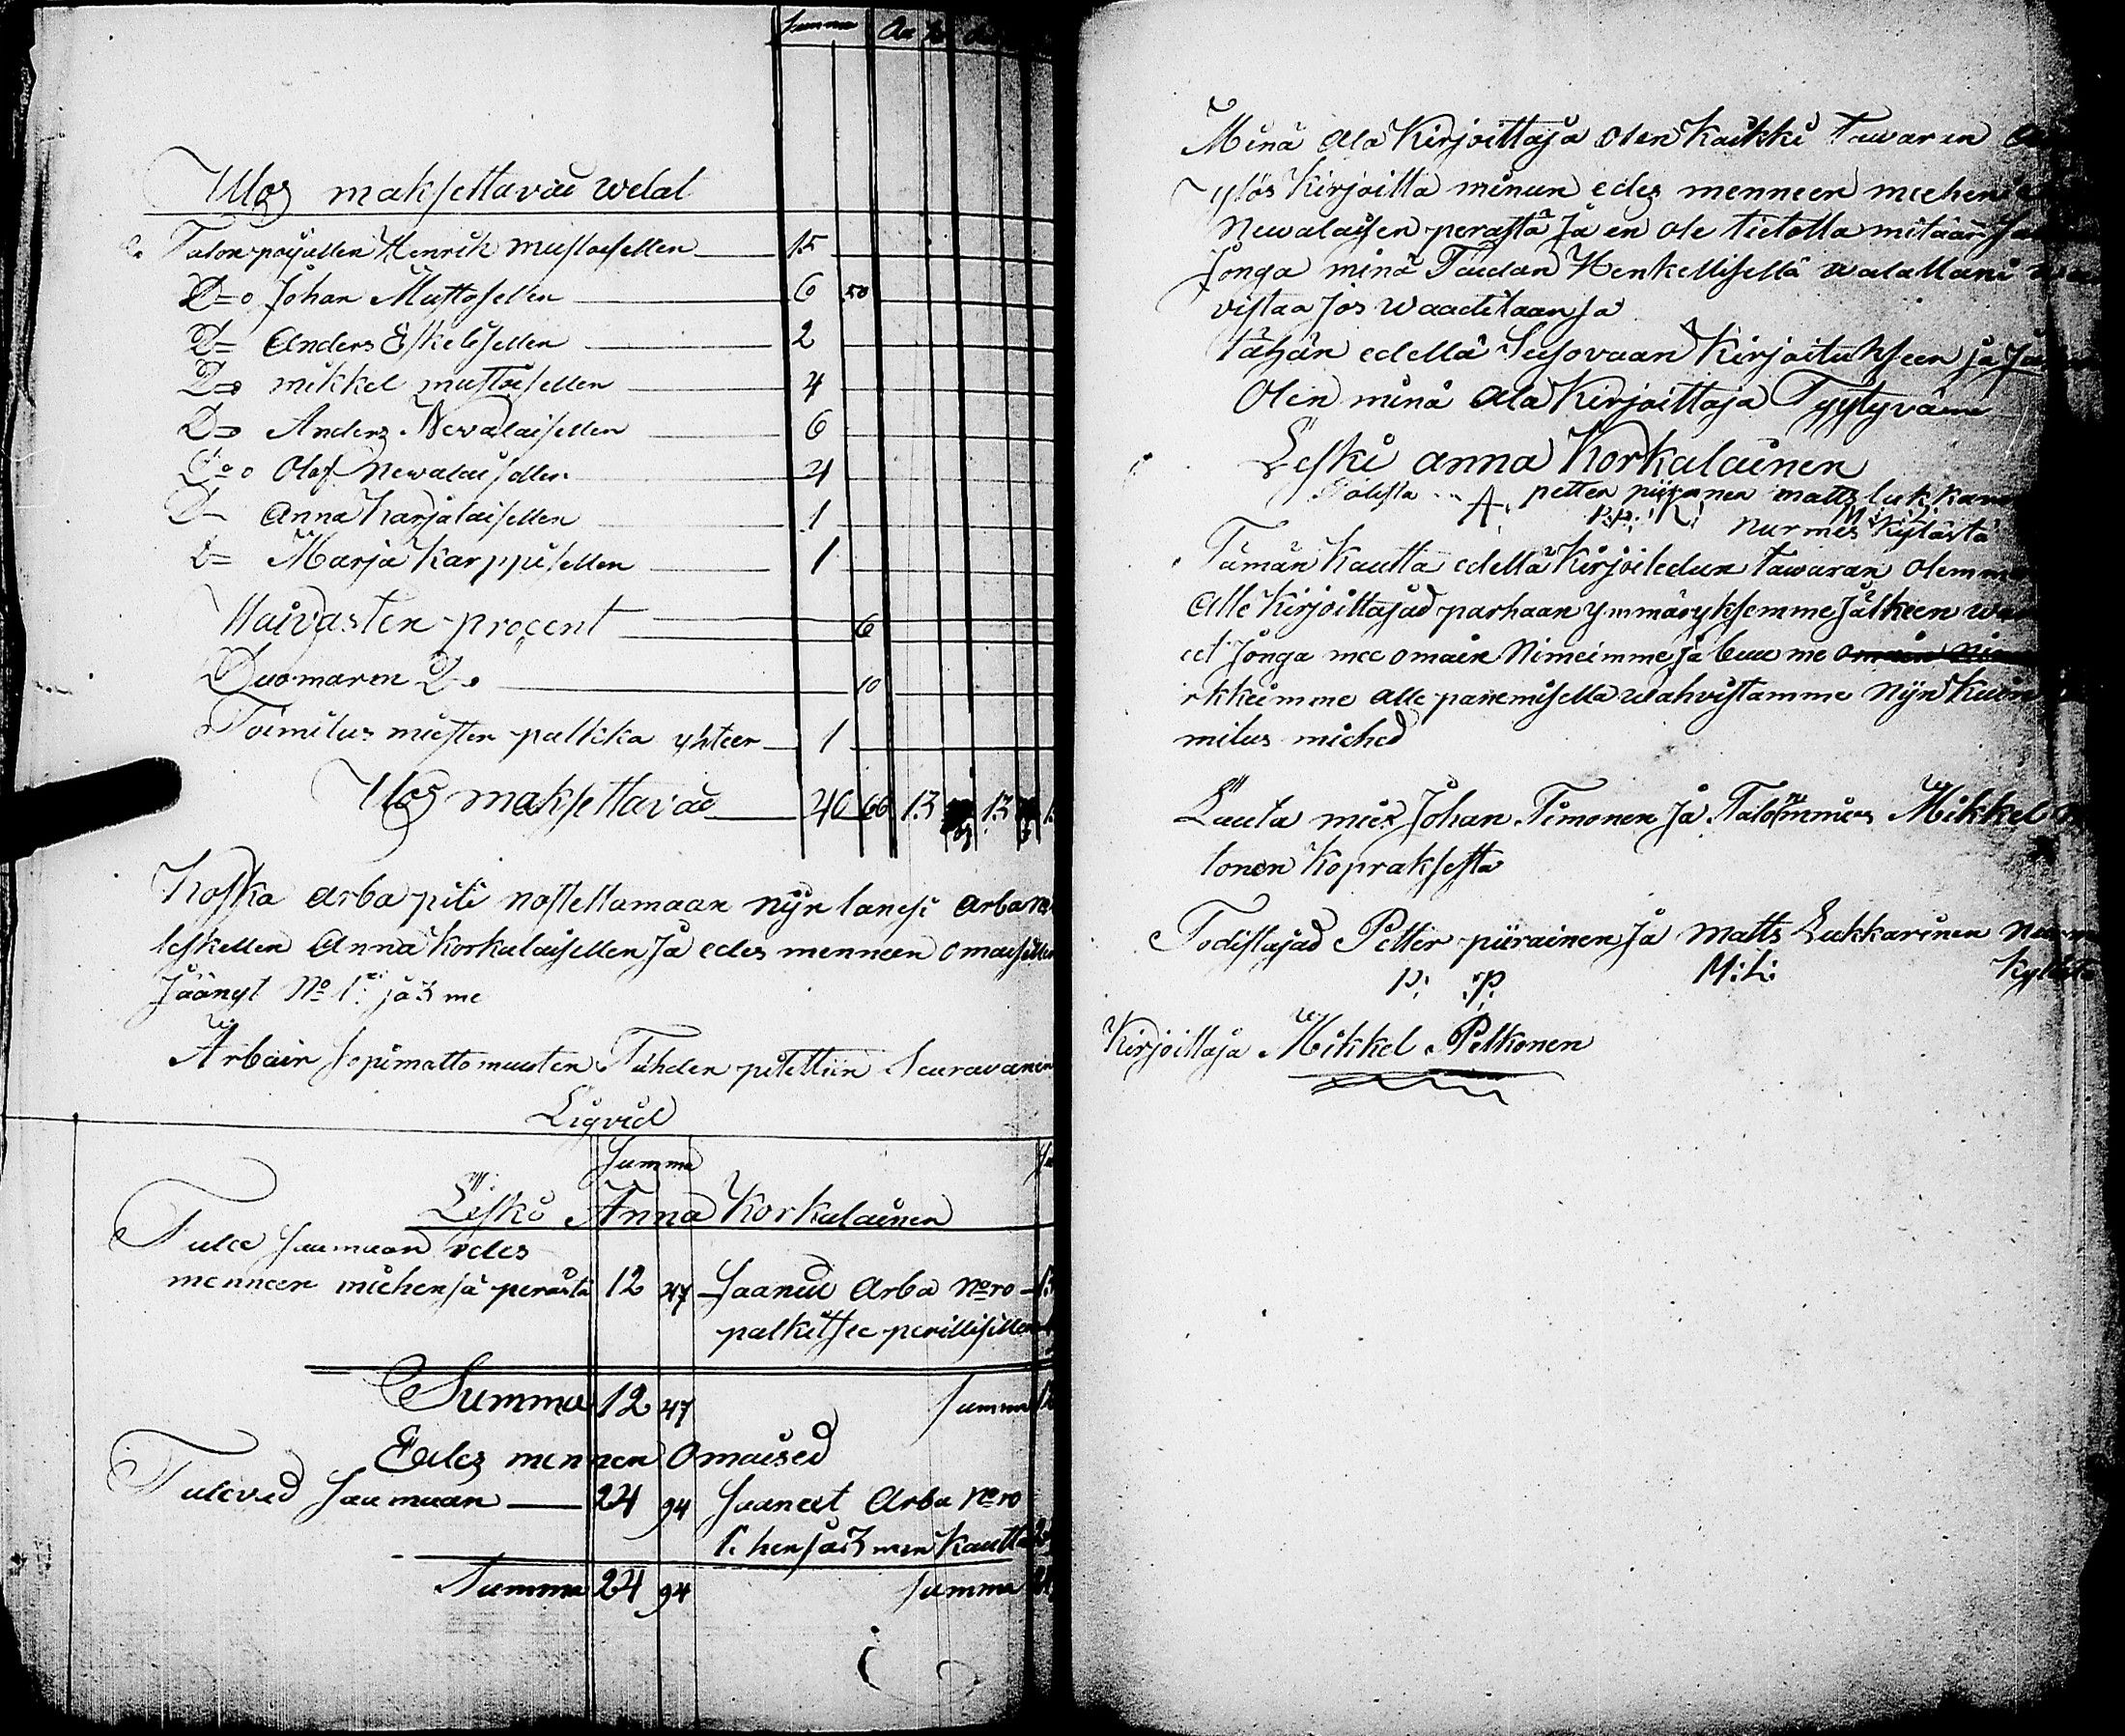 Summa
Ulos maksettavia welat
Talon pojallen Henrik Mustosellen 15
D=o Johan Mustosellen 6 50
D= Anders Eskelisellen 2
D=o mikkel mustoisellen 4
D=o Anders Newalaisellen 6
D=o Olof Newalaisellen 4
D= Anna Karjalaisellen 1
D= Marja Karppisellen 1
Waivasten procent 6
Duomarin D=o 10
Toimitus miesten palkka yhteen 1
Ulos maksettavia 40 66 13 13
Koska arba piti nostettamaan nijn lanesi arba
leskellen Anna Korkalaisellen ja edes menneen omaisillen
Jäänyt No 1: ja 3 me
Arbain sopimattomuuten Tähden pitettiin Seuravanen
Liqvid
Summa
Leski Anna Korkalainen
Tulee saamaan edes
menneen miehensä perästä 12 47 saanut Arba Nro
palkitsee perillisillen
Summa 12 47 summa
Edes mennen Omaised
Tuleved saamaan 24 94 saaneet Arba Nro
1: hen ja 3 men kautta
Summa 24 94 summa
Minä ala Kirjoittaja olen kaikki Tawaren
ylös Kirjoitta minun edes menneen miehen
Newalaisen perästä ja en ole tietolla mitään
Jonga minä Taidan Henkellisellä walallani
vistaa jos waaditaan ja
tähän edellä Seisovaan Kirjoitukseen ja
Olen minä ala Kirjoittaja Tyytyväin
Leski anna Korkalainen
petter piiranen matts lukkari
P:P: M:L:
nurmes kylästä
Tämän Kautta edellä Kirjoitedun tawaran olemme
Alle Kirjoittajad parhaan ymmäryksemme jälkeen
et Jonga mee omain Nimeimme ja buu me
rkkeimme alle panemisella wahvistamme Nijn kuin
mitus miehed
Lauta mies Johan Timonen ja Talommies Mikkel
tonen Kopraksesta
Todistajad Petter piirainen ja Matts Lukkarinen
P: P: M:L: Kylästä
Kirjoittaja Mikkel Pelkonen